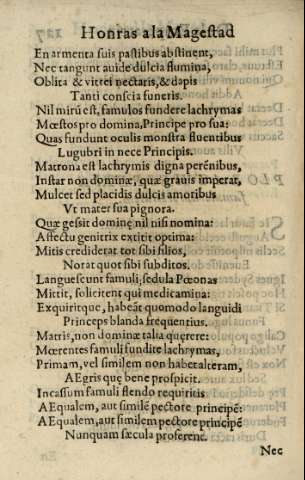 Honras a la Magestad
En armenta suis pastibus abstinent,
Nec tangunt auide dulcia flumina,
Oblita & vitrei nectaris, & dapis
Tanti conscia funeris.
Nil mirũ est, famulos fundere lachrymas
Mœstos pro domina, Principe pro sua:
Quas fundunt oculis monstra fluentibus
Lugubri in nece Principis.
Matrona est lachrymis digna perẽnibus,
Instar non dominæ, quæ grauis imperat,
Mulcet sed placidis dulcis amoribus
Vt mater sua pignora.
Quæ gessit dominę nil nisi nomina:
Affectu genitrix extitit optima:
Mitis crediderat tot sibi filios,
Norat quot sibi subditos.
Languescunt famuli, sedula Pœonas
Mittit, solicitent qui medicamina:
Exquiritque, habeãt quomodo languidi
Princeps blanda frequentius.
Matris, non dominæ talia quęrere:
Mœrentes famuli fundite lachrymas,
Primam, vel similem non habetalteram,
AEgris quę bene prospicit.
Incassum famuli flendo requiritis
AEqualem, aut similẽ pectore principẽ:
AEqualem, aut similem pectore principẽ
Nunquam sæcula proferent.
Nec